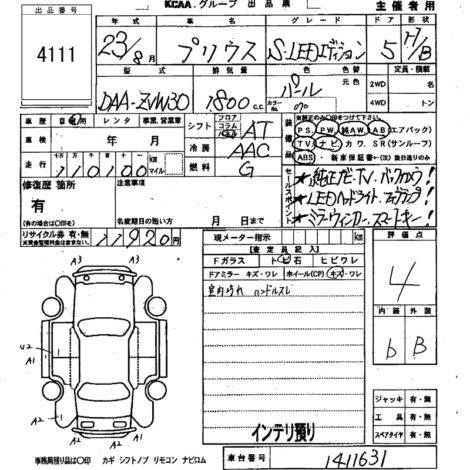 KCAA.グループ 出品票
主催者用
出品番号
4111
年式 車名 グレード ドア 形状
23/8月 プリウス S-LEDエディション 5 H/B
型式 排気量 色 色替 定員・積載
DAA-ZVW30 1800c.c. パール 元色 2WD 名
カラーNo 070 4WD トン
車歴 自家用 レンタ 事業、営業車
シフト フロア コラム AT
車検 年 月
冷房 AAC
走行 km マイル
燃料 G
装備品 ※純正品のみ〇印をつけて下さい
PS, PW, 純AW, AB(エアバック)
TV ナビ カワ, SR(サンルーフ)
ABS ・新車保証書←(次)後日送りのみ
修復歴 箇所
有
(有の場合は〇印を) 名変期日の短い方 月 日まで
セールスポイント
★純正ナビ・TV、バックカメラ!
★LEDヘッドライト・フォグランプ!
★ミラーウィンカー、スマートキー!
リサイクル券 有・無 11920円
現メーター指示 km
評価点
4
【査定員記入】
Fガラス トビ石 ヒビワレ
ドアミラー キズ・ワレ ホイール(CP) キズ・ワレ
室内汚れ ハンドルスレ
内装 外装
b B
A3 A3
U2
A1 A1
A2 A1 A2 A2
インテリ預り
ジャッキ 有・無
工具 有・無
スペアタイヤ 有・無
事務局預り品は〇印 カギ シフトノブ リモコン ナビロム
車台番号 1411631